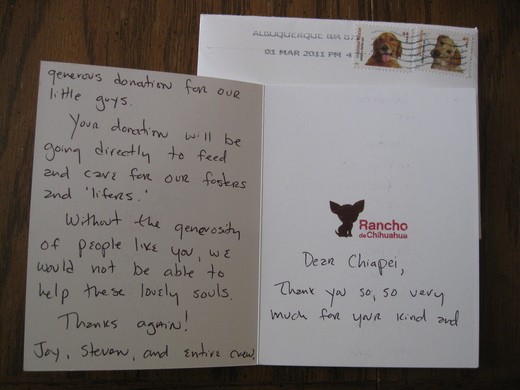 ALBUQUERQUE NM 87
01 MAR 2011 PM 4
Rancho
de Chihuahua
Dear Chiapei,
Thank you so, so very
much for your kind and
generous donation for our
little guys.
Your donation will be
going directly to feed
and care for our fosters
and 'lifers.'
Without the generosity
of people like you, we
would not be able to
help these lovely souls.
Thanks again!
Joy, Steven, and entire crew.